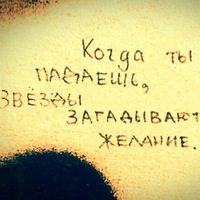 Когда ты
падаешь,
звёзды
загадывают
желание.